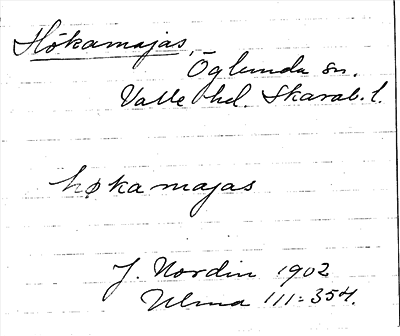 Hökamajas,
Öglunda sn.
Valle hd. Skarab. l.
høkamajas
J. Nordin 1902
Ulma 111:354.